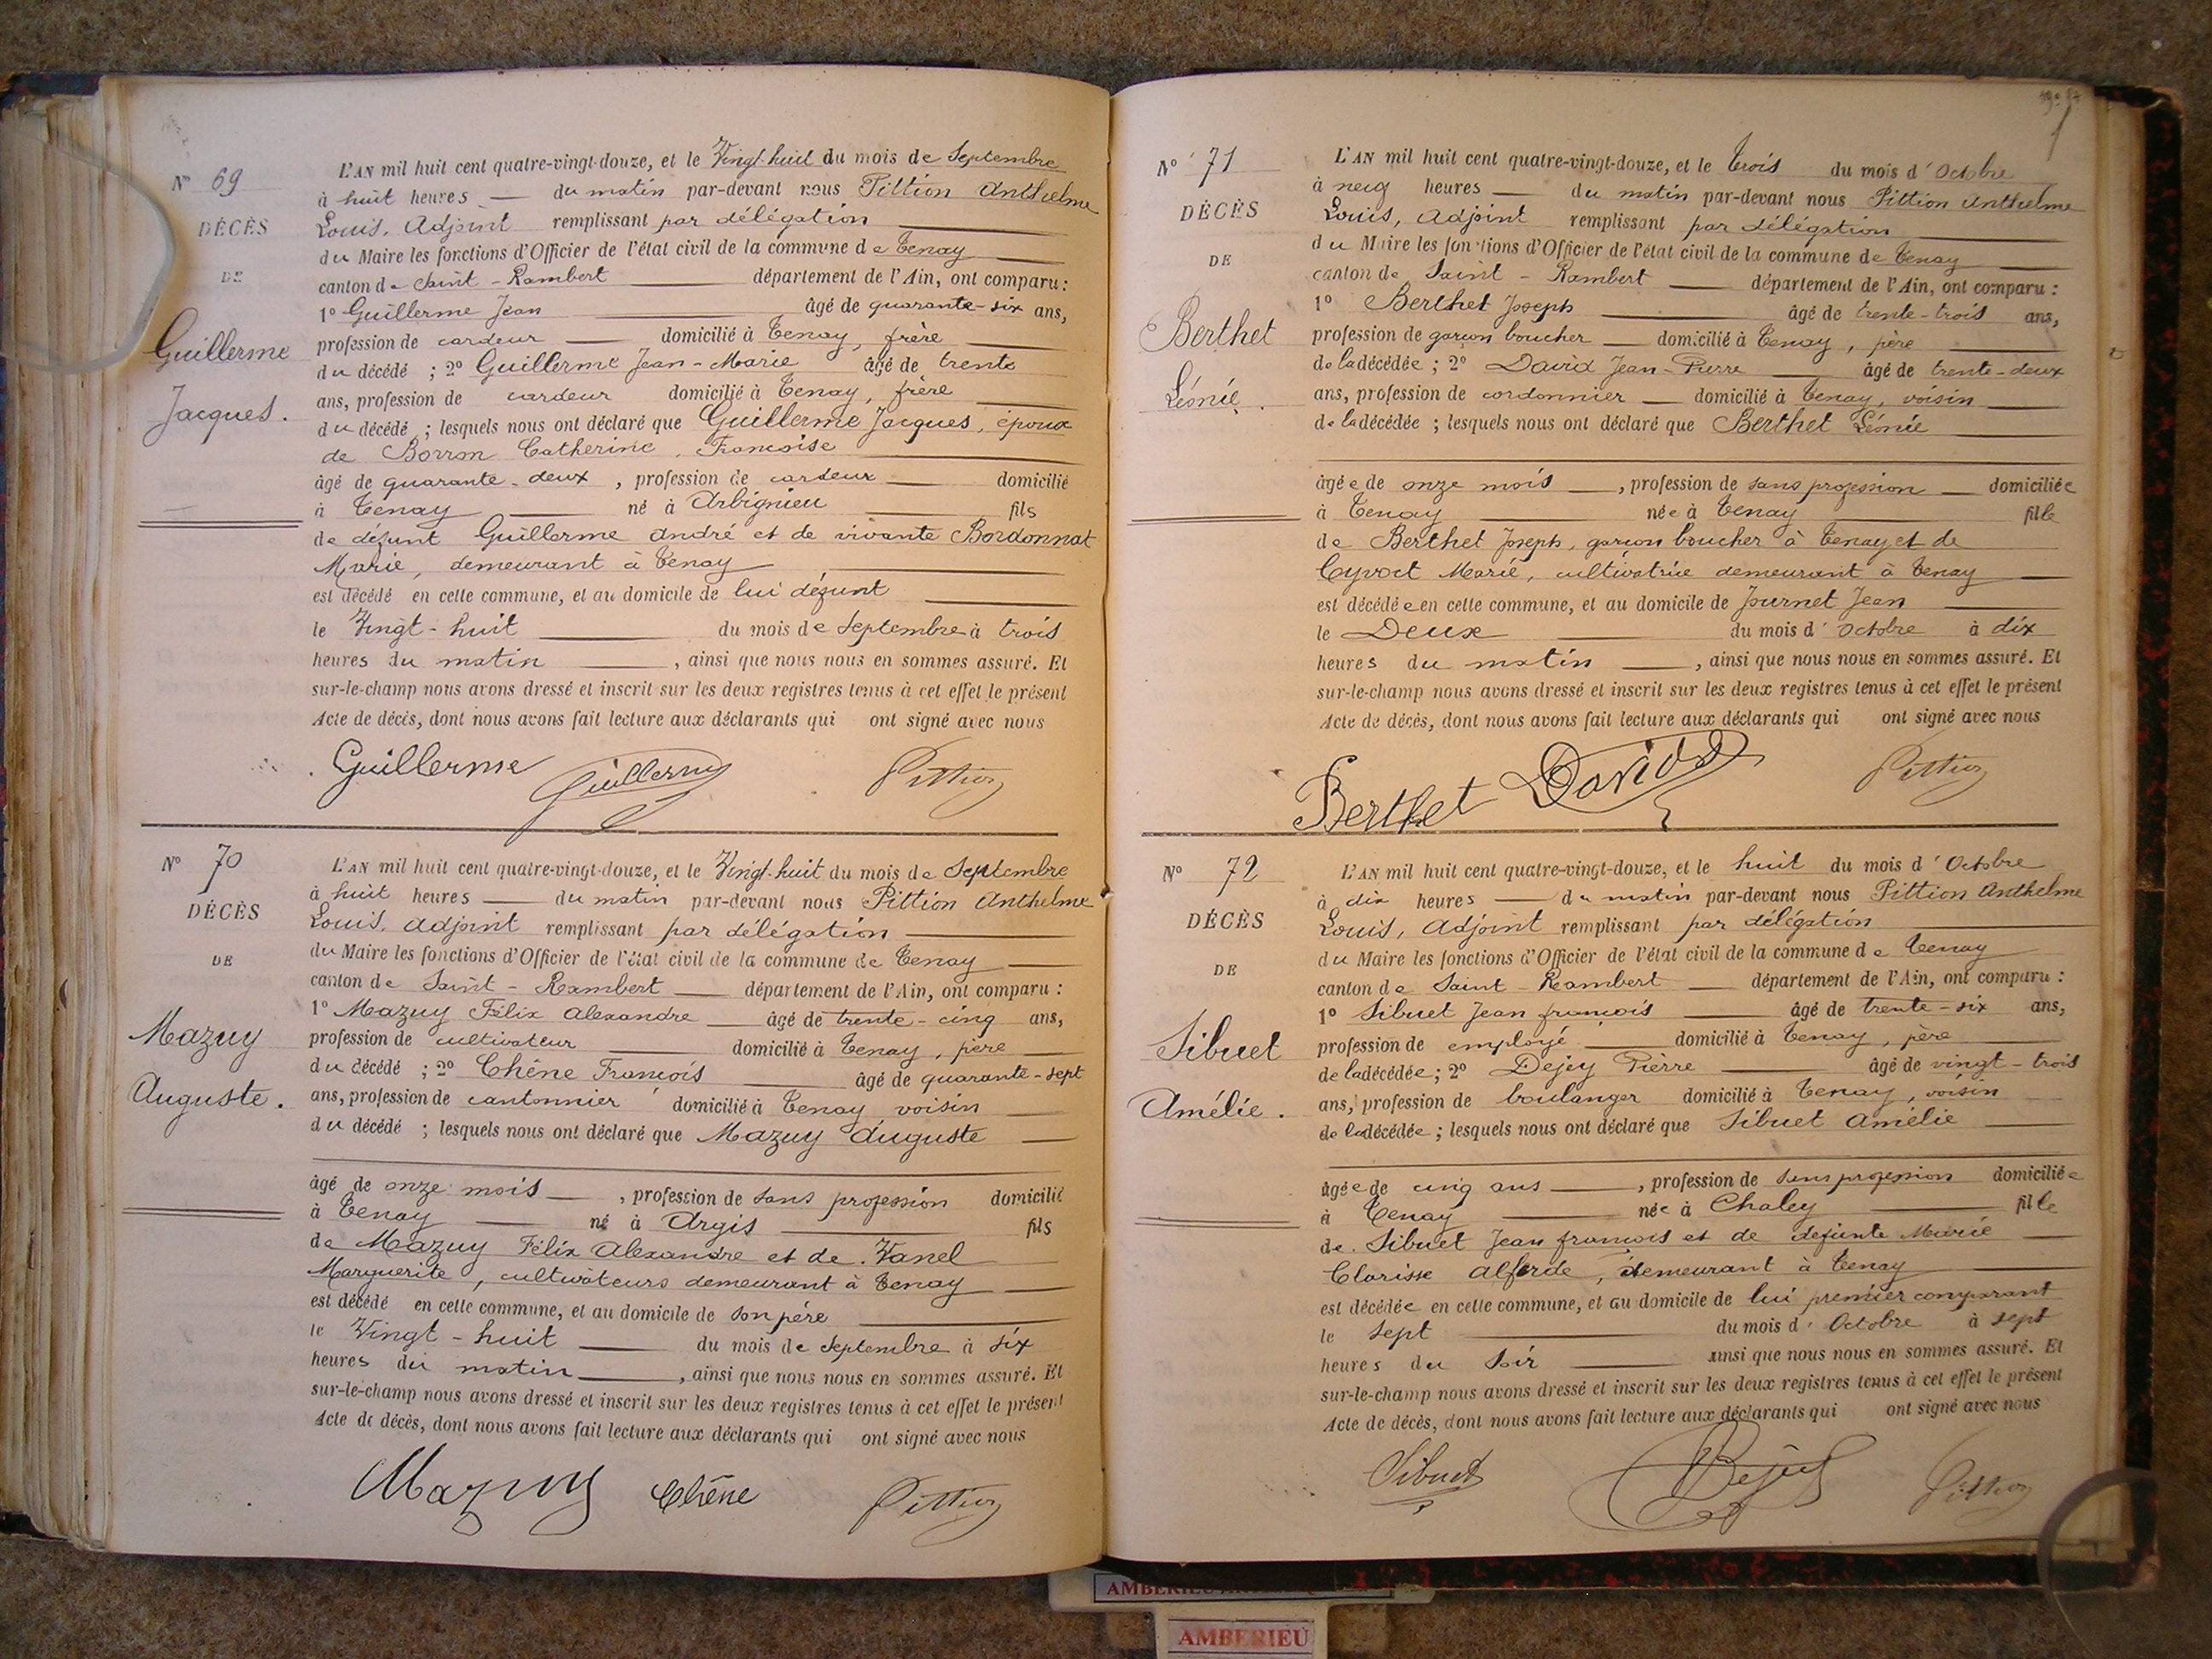 Nº 69
DÉCÈS
DE
Guillerme
Jacques.
L'AN mil huit cent quatre-vingt-douze, et le Vingt-huit du mois de Septembre
à huit heures — du matin par-devant nous Pittion Anthelme
Louis, Adjoint remplissant par délégation
du Maire les fonctions d'Officier de l'état civil de la commune de Tenay
canton de Saint-Rambert département de l'Ain, ont comparu :
1º Guillerme Jean âgé de quarante-six ans,
profession de cardeur domicilié à Tenay, frère
du décédé ; 2º Guillerme Jean-Marie âgé de trente
ans, profession de cardeur domicilié à Tenay, frère
du décédé ; lesquels nous ont déclaré que Guillerme Jacques, époux
de Borron Catherine, Françoise
âgé de quarante-deux, profession de cardeur domicilié
à Tenay né à Arbignieu fils
de défunt Guillerme André et de vivante Bordonnat
Marie, demeurant à Tenay
est décédé en cette commune, et au domicile de lui défunt
le Vingt-huit du mois de Septembre à trois
heures du matin, ainsi que nous nous en sommes assuré. Et
sur-le-champ nous avons dressé et inscrit sur les deux registres tenus à cet effet le présent
Acte de décès, dont nous avons fait lecture aux déclarants qui ont signé avec nous
Guillerme Guillerme Pittion
Nº 70
DÉCÈS
DE
Mazuy
Auguste.
L'AN mil huit cent quatre-vingt-douze, et le Vingt-huit du mois de Septembre
à huit heures — du matin par-devant nous Pittion Anthelme
Louis, Adjoint remplissant par délégation
du Maire les fonctions d'Officier de l'état civil de la commune de Tenay
canton de Saint-Rambert département de l'Ain, ont comparu :
1º Mazuy Félix Alexandre âgé de trente-cinq ans,
profession de cultivateur domicilié à Tenay, père
du décédé ; 2º Chêne François âgé de quarante-sept
ans, profession de cantonnier domicilié à Tenay voisin
du décédé ; lesquels nous ont déclaré que Mazuy Auguste
âgé de onze mois, profession de sans profession domicilié
à Tenay né à Argis fils
de Mazuy Félix Alexandre et de Vanel
Marguerite, cultivateurs demeurant à Tenay
est décédé en cette commune, et au domicile de son père
le Vingt-huit du mois de Septembre à six
heures du matin, ainsi que nous nous en sommes assuré. Et
sur-le-champ nous avons dressé et inscrit sur les deux registres tenus à cet effet le présent
Acte de décès, dont nous avons fait lecture aux déclarants qui ont signé avec nous
Mazuy Chêne Pittion
Nº 71
DÉCÈS
DE
Berthet
Léonie.
L'AN mil huit cent quatre-vingt-douze, et le Trois du mois d'Octobre
à neuf heures — du matin par-devant nous Pittion Anthelme
Louis, Adjoint remplissant par délégation
du Maire les fonctions d'Officier de l'état civil de la commune de Tenay
canton de Saint-Rambert département de l'Ain, ont comparu :
1º Berthet Joseph âgé de trente-trois ans,
profession de garçon boucher domicilié à Tenay, père
de la décédée ; 2º David Jean-Pierre âgé de trente-deux
ans, profession de cordonnier domicilié à Tenay, voisin
de la décédée ; lesquels nous ont déclaré que Berthet Léonie
âgée de onze mois, profession de sans profession domiciliée
à Tenay née à Tenay fille
de Berthet Joseph, garçon boucher à Tenay et de
Cyvoct Marie, cultivatrice demeurant à Tenay
est décédée en cette commune, et au domicile de Journet Jean
le Deux du mois d'Octobre à dix
heures du matin, ainsi que nous nous en sommes assuré. Et
sur-le-champ nous avons dressé et inscrit sur les deux registres tenus à cet effet le présent
Acte de décès, dont nous avons fait lecture aux déclarants qui ont signé avec nous
Berthet David Pittion
Nº 72
DÉCÈS
DE
Sibuet
Amélie.
L'AN mil huit cent quatre-vingt-douze, et le huit du mois d'Octobre
à dix heures — du matin par-devant nous Pittion Anthelme
Louis, Adjoint remplissant par délégation
du Maire les fonctions d'Officier de l'état civil de la commune de Tenay
canton de Saint-Rambert département de l'Ain, ont comparu :
1º Sibuet Jean françois âgé de trente-six ans,
profession de employé domicilié à Tenay, père
de la décédée ; 2º Dejey Pierre âgé de vingt-trois
ans, profession de boulanger domicilié à Tenay, voisin
de la décédée ; lesquels nous ont déclaré que Sibuet Amélie
âgée de cinq ans, profession de sans profession domiciliée
à Tenay née à Chaley fille
de Sibuet Jean françois et de défunte Marie
Clarisse, demeurant à Tenay
est décédée en cette commune, et au domicile de lui premier comparant
le sept du mois d'Octobre à sept
heures du soir ainsi que nous nous en sommes assuré. Et
sur-le-champ nous avons dressé et inscrit sur les deux registres tenus à cet effet le présent
Acte de décès, dont nous avons fait lecture aux déclarants qui ont signé avec nous
Sibuet Dejey Pittion
AMBERIEU
AMBERIEU